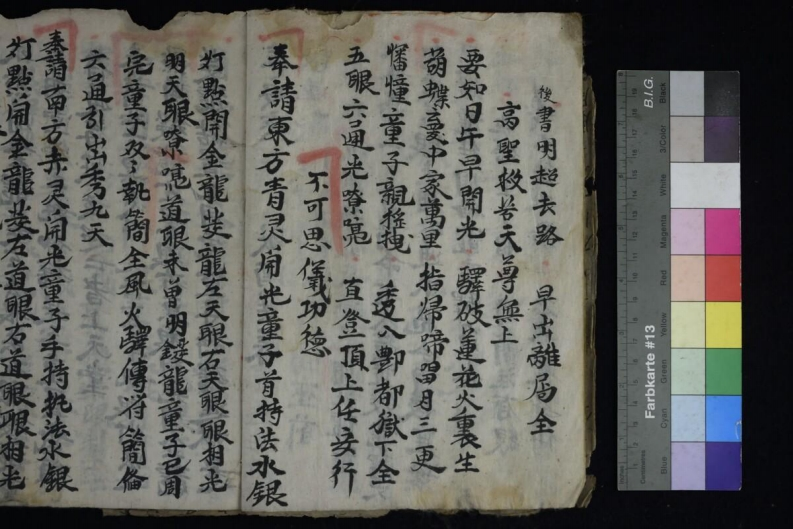 後書明超去路 早出離局全
高聖救苦天尊無上
要知日午早開光 驛破蓮花火裏生
萌蝶憂中家萬里 指帰啼留月三更
幡憧童子親 透入酆都獄下全
五眼六通光嘹喨 直登頂上任妄行
不可思儀功德
奉請東方青灵開光童子首持法水銀
灯點開金龍娄龍左天眼右天眼眼相光
明天眼嘹喨道眼未曾明鍵龍童子已周
完童子双〻執簡全風火驛傳符簡倫
六通引出秀九天
奉請南方赤灵開光童子手持执法水銀
灯點開金龍娄左道眼右道眼眼相光
B.I.G.
Farbkarte #13
Black
3/Color
White
Magenta
Red
Yellow
Green
Cyan
Blue
Centimetres